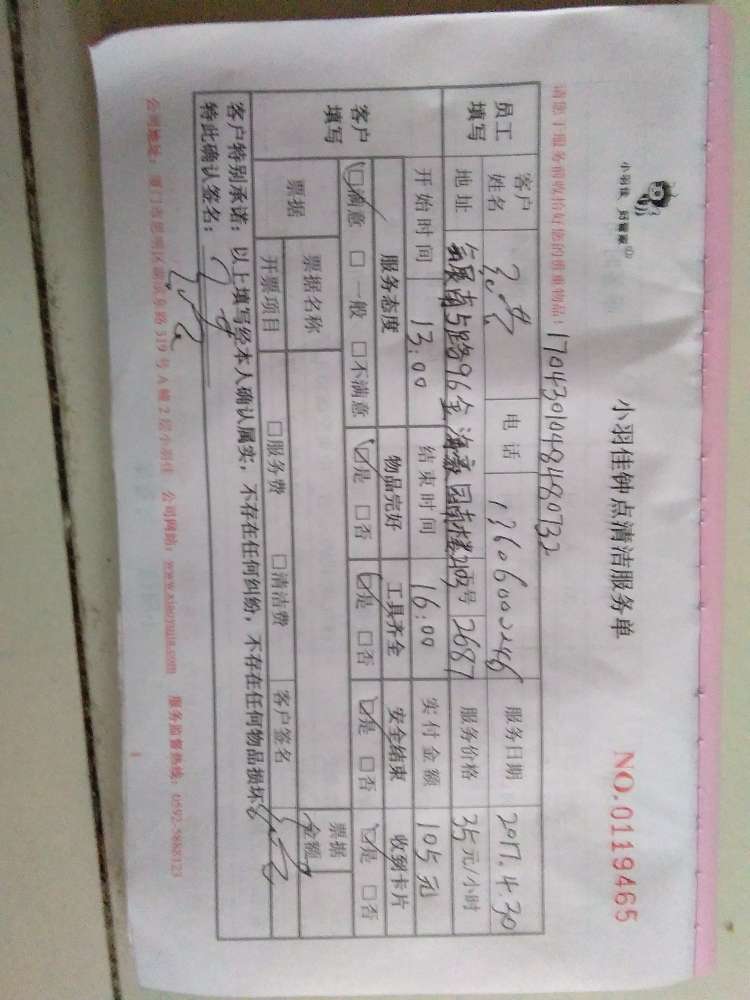 小羽佳 好管家
小羽佳钟点清洁服务单
NO.0119465
请您于服务前收拾好您的贵重物品!
1704301048480732
员工填写 客户姓名 电话 13606000246 服务日期 2017.4.30
地址 路96金海豪园 号 2687 服务价格 35元/小时
开始时间 13:00 结束时间 16:00 实付金额 105元
客户填写 服务态度 物品完好 工具齐全 安全结束 收到卡片
☑满意 □一般 □不满意 ☑是 □否 ☑是 □否 ☑是 □否 ☑是 □否
票据 票据名称 票据金额
开票项目 □服务费 □清洁费 客户签名
客户特别承诺:以上填写经本人确认属实,不存在任何纠纷,不存在任何物品损坏。
特此确认签名:
公司地址:厦门市思明区 路319号A幢2层小羽佳 公司网站:www.xiaoyujia.com 服务监督热线:0592-5888123